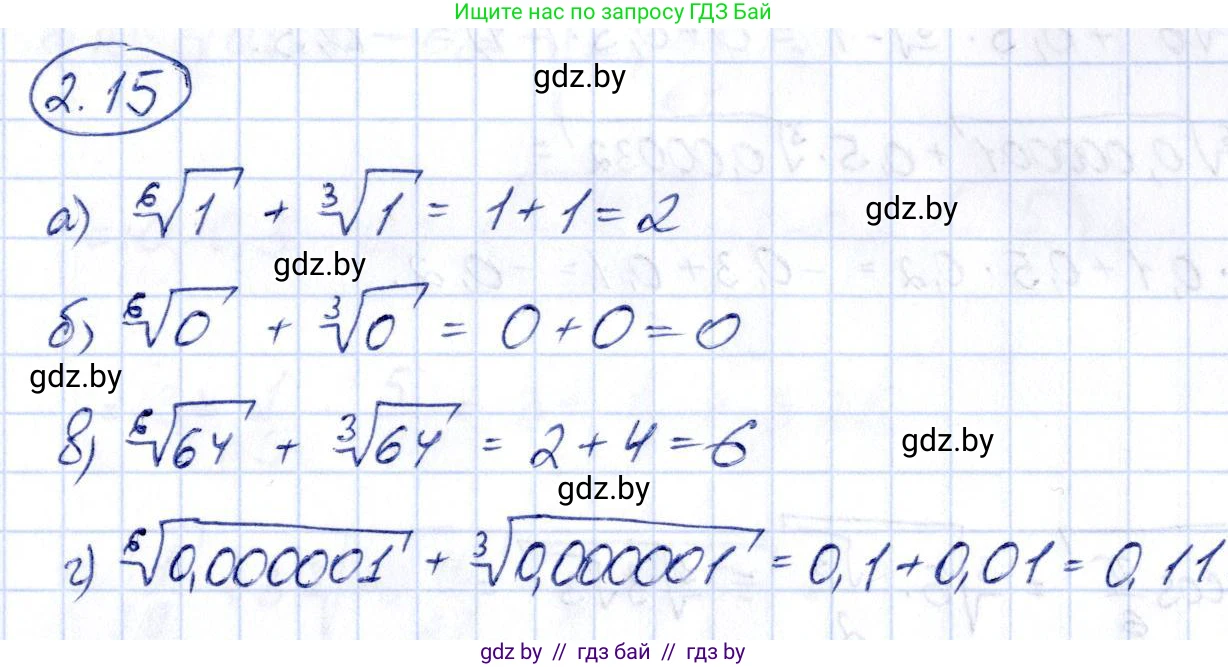 Ищите нас по запросу ГДЗ Бай
2.15
gdz.by
а) ⁶√1 + ³√1 = 1 + 1 = 2
gdz.by
gdz.by
б) ⁶√0 + ³√0 = 0 + 0 = 0
gdz.by
в) ⁶√64 + ³√64 = 2 + 4 = 6
gdz.by
gdz.by
г) ⁶√0,000001 + ³√0,000001 = 0,1 + 0,01 = 0,11
gdz by // гдз бай // гдз by